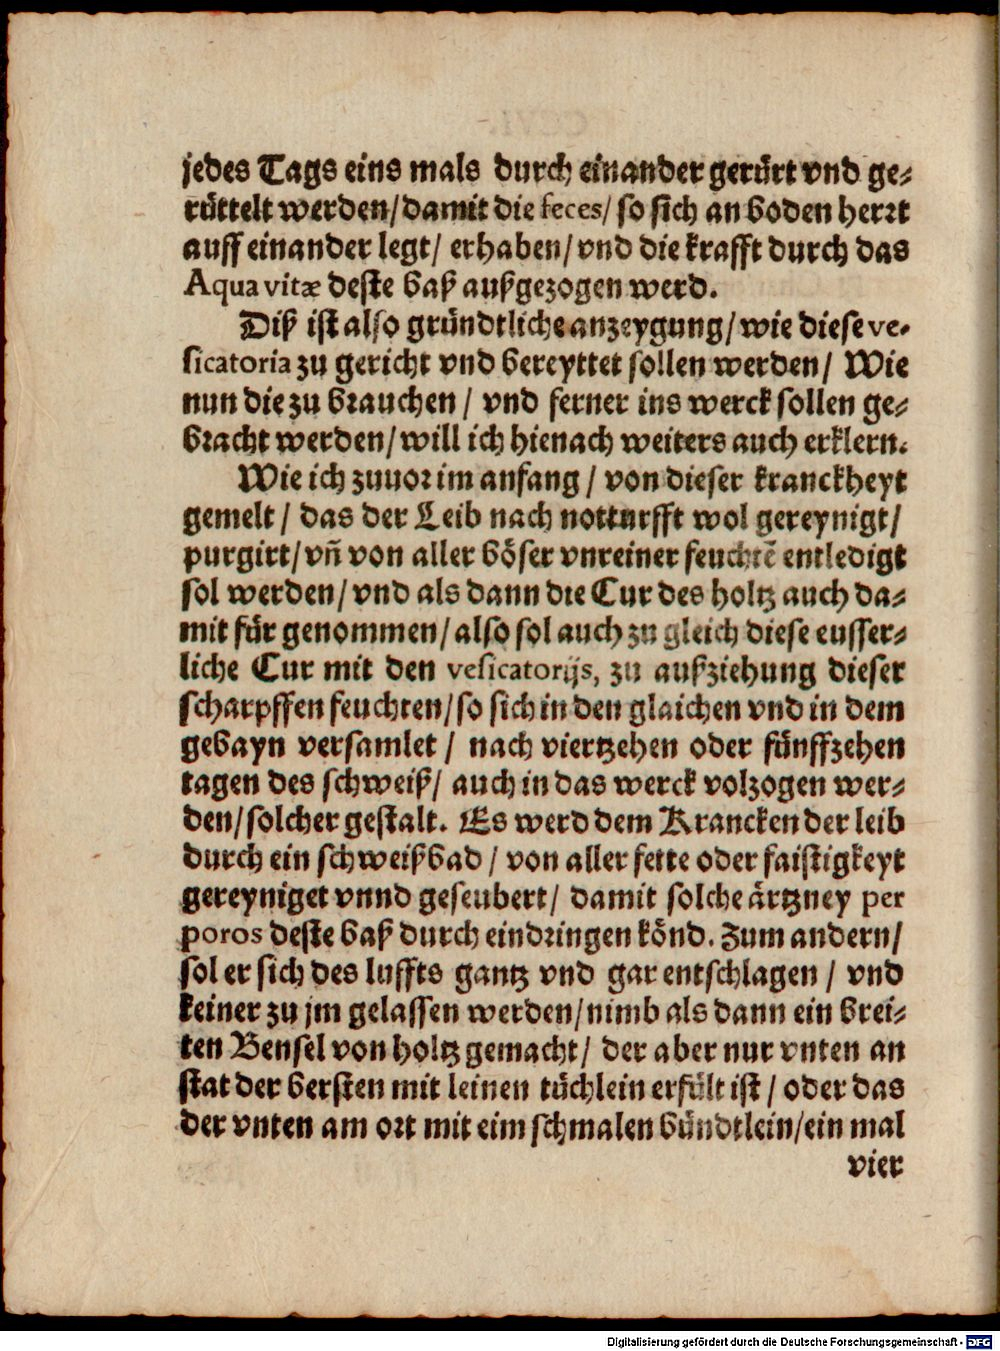 jedes Tags eins mals durch einander gerürt vnd ge⸗
rüttelt werden/damit die feces/ so sich an boden herꝛt
auff einander legt/ erhaben/ vnd die krafft durch das
Aqua vitæ deste baß außgezogen werd.
Diß ist also gründtliche anzeygung/wie diese ve-
sicatoria zu gericht vnd bereyttet sollen werden/ Wie
nun die zu bꝛauchen / vnd ferner ins werck sollen ge⸗
bꝛacht werden/will ich hienach weiters auch erklern.
Wie ich zuuoꝛ im anfang / von dieser kranckheyt
gemelt / das der Leib nach notturfft wol gereynigt/
purgirt/vñ von aller böser vnreiner feuchtē entledigt
sol werden/ vnd als dann die Cur des holtz auch da⸗
mit für genommen/also sol auch zu gleich diese eusser⸗
liche Cur mit den vesicatorijs, zu außziehung dieser
scharpffen feuchten/so sich in den glaichen vnd in dem
gebayn versamlet / nach viertzehen oder fünffzehen
tagen des schweiß/ auch in das werck volzogen wer⸗
den/solcher gestalt. Es werd dem Krancken der leib
durch ein schweißbad / von aller fette oder faistigkeyt
gereyniget vnnd geseubert/ damit solche ärtzney per
poros deste baß durch eindꝛingen könd. Zum andern/
sol er sich des luffts gantz vnd gar entschlagen / vnd
keiner zu jm gelassen werden/nimb als dann ein bꝛei⸗
ten Bensel von holtz gemacht/ der aber nur vnten an
stat der bersten mit leinen tüchlein erfült ist / oder das
der vnten am oꝛt mit eim schmalen bündtlein/ein mal
vier
Digitalisierung gefördert durch die Deutsche Forschungsgemeinschaft - DFG